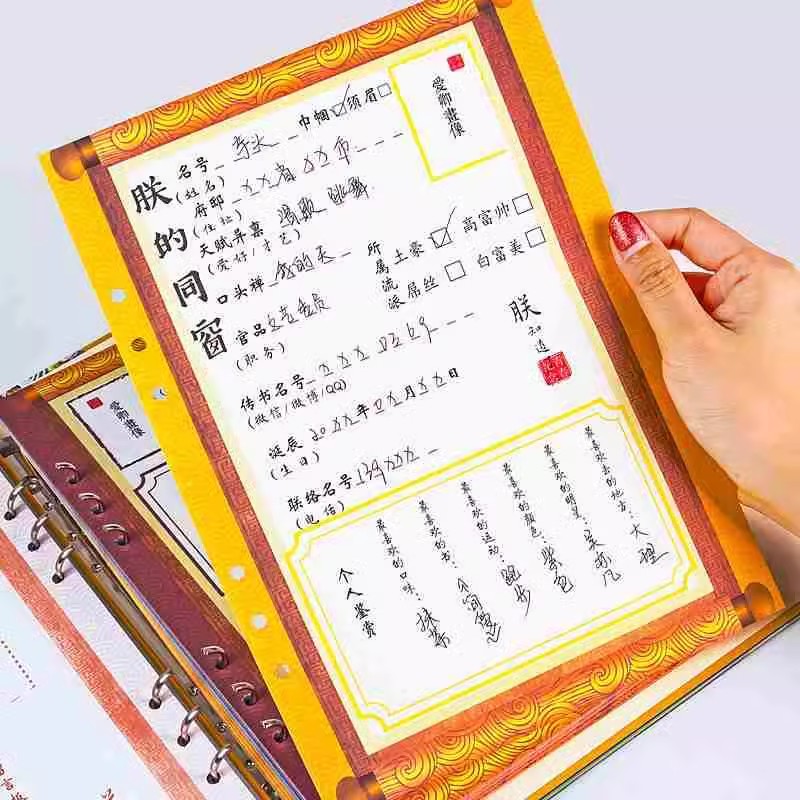 朕的同窗
愛卿畫像
名号 巾帼 须眉
(姓名)
府邸 XX省XX市
(住址)
天赋异禀 唱歌 跳舞
(爱好/才艺)
口头禅 我的天
所属流派 土豪 高富帅
屌丝 白富美
官品 文艺委员
(职务)
朕
知道
传书名号 XXX 0369
(微信/微博/QQ)
诞辰 20XX年0X月XX日
(生日)
联络名号 139XXX
(电信)
最喜欢去的地方：大理
最喜欢的明星：吴亦凡
最喜欢的颜色：紫色
最喜欢的运动：跑步
最喜欢的书：
最喜欢的口味：抹茶
个人鉴赏
愛卿畫像